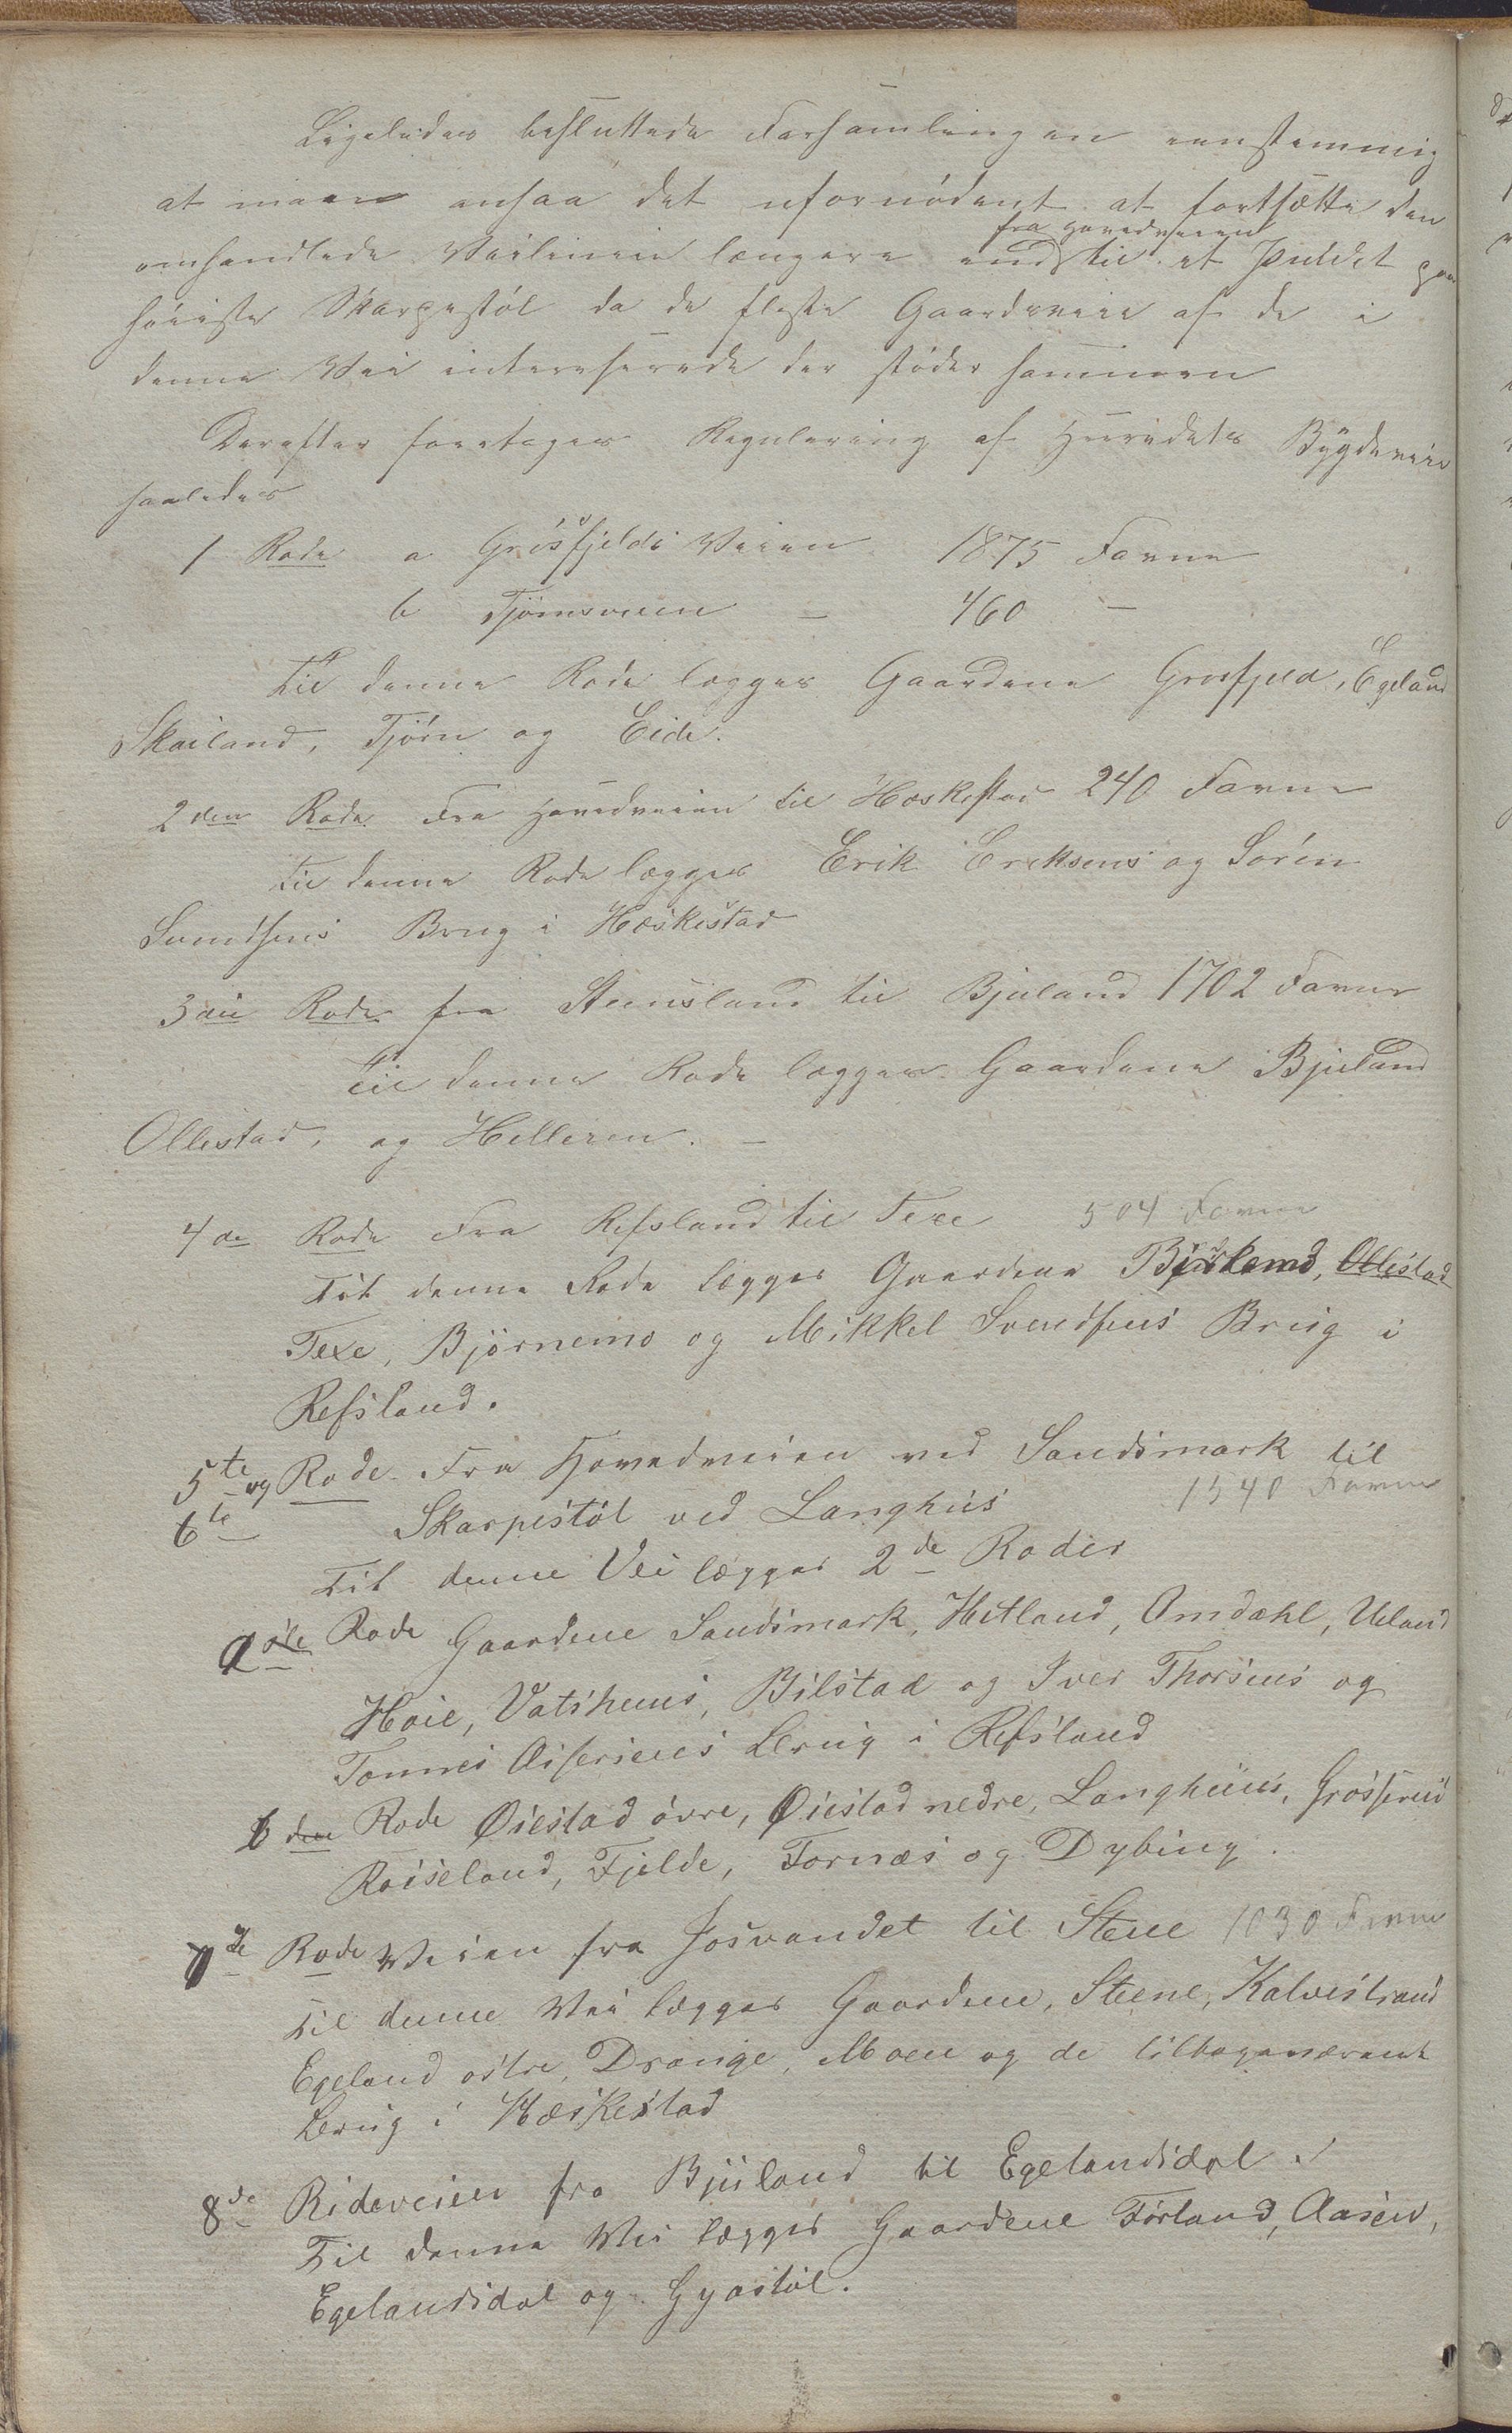 Ligeledes besluttede Forsamlingen eenstemmig
at man ansaa det ufornødent at fortsætte den
fra Hovedveien
omhandlede Veilinie længere end til et Punkt paa
høieste Skarpestøl da de fleste Gaardsveie af de i
denne Vei interesserede der støder sammen
Derefter foretoges Regulering af Herredets Bygdeveie
saaledes
1 Rode a Grøsfjelds Veien 1875 Favne
b Tjørnsveien — 460 —
Til denne Rode lægges Gaardene Grøsfjeld, Egeland
Skailand, Tjørn og Eide.
2den Rode Fra Hovedveien til Hæskestad 240 Favne
Til denne Rode lægges Erik Eriksens og Søren
Svendsens Brug i Hæskestad
3die Rode fra Steensland til Bjuland 1702 Favne
Til denne Rode lægges Gaardene Bjuland
Ollestad, og Helleren. —
4de Rode Fra Refsland til Texe 504 Favne
Til denne Rode lægges Gaardene Ollestad
Texe, Bjørnemo og Mikkel Svendsens Brug i
Refsland.
5te og Rode Fra Hovedveien ved Sandsmark til
6te Skarpestøl ved Langhus 1540 Favne
Til denne Vei lægges 2de Roder
a Rode Gaardene Sandsmark, Hetland, Omdahl, Ueland
Høie, Vatshuus, Bilstad og Iver Thorsens og
Tønnes Brug i Refsland
b den Rode Øiestad øvre, Øiestad nedre, Langhuus,
Røiseland, Fjelde, Fornæs og Dybing.
7de Rode Veien fra Josvandet til Stene 1030 Favne
Til denne Vei lægges Gaardene, Steene, Kalvestrand
Egeland østre, Drange, Moen og de tilbageværende
Brug i Hæskestad
8de Rideveien fra Bjuland til Egelandsdal.
Til denne Vei lægges Gaardene Førland, Aasen,
Egelandsdal og Gyastøl.